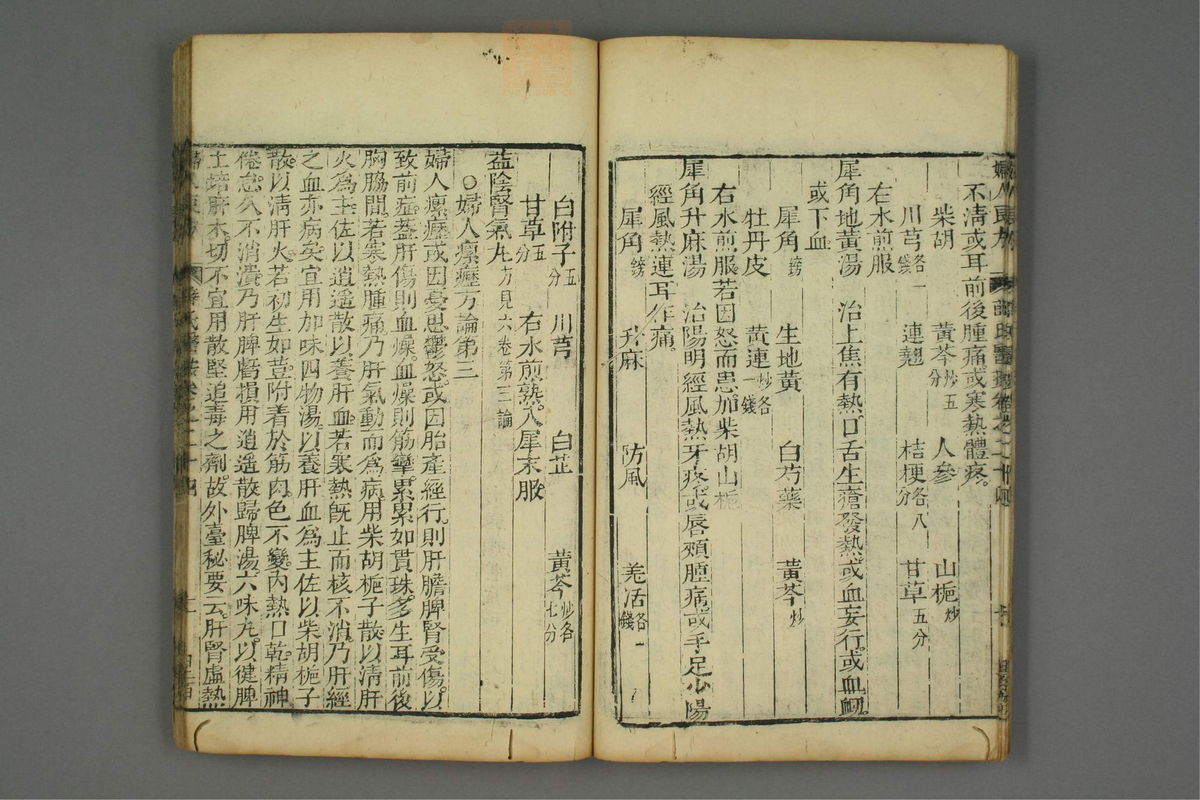 不清或耳前後腫痛或寒熱體疼
柴胡　黃芩炒五分　人參　山梔炒
川芎各一錢　連翹　桔梗各八分　甘草五分
右水煎服
犀角地黃湯　治上焦有熱口舌生瘡發熱或血妄行或血衂
或下血
犀角鎊　生地黃　白芍藥　黃芩炒
牡丹皮　黃連炒各一錢
右水煎服若因怒而患加柴胡山梔
犀角升麻湯　治陽明經風熱牙疼或唇頰腫痛或手足少陽
經風熱連耳作痛
犀角鎊　升麻　防風　羌活各一錢
白附子五分　川芎　白芷　黃芩炒各七分
甘草五分　右水煎熟入犀末服
益陰腎氣丸方見六卷第三論
○婦人瘰癧方論第三
婦人瘰癧或因憂思鬱怒或因胎產經行則肝膽脾腎受傷以
致前症蓋肝傷則血燥血燥則筋攣累累如貫珠多生耳前後
胸脇間若寒熱腫痛乃肝氣動而爲病用柴胡梔子散以清肝
火爲主佐以逍遥散以養肝血若寒熱旣止而核不消乃肝經
之血亦病矣宜用加味四物湯以養肝血爲主佐以柴胡梔子
散以清肝火若初生如荳附着於筋肉色不變內熱口乾精神
倦怠久不消潰乃肝脾虧損用逍遥散歸脾湯六味丸以健脾
土培肝木切不宜用散堅追毒之劑故外臺秘要云肝腎虛熱